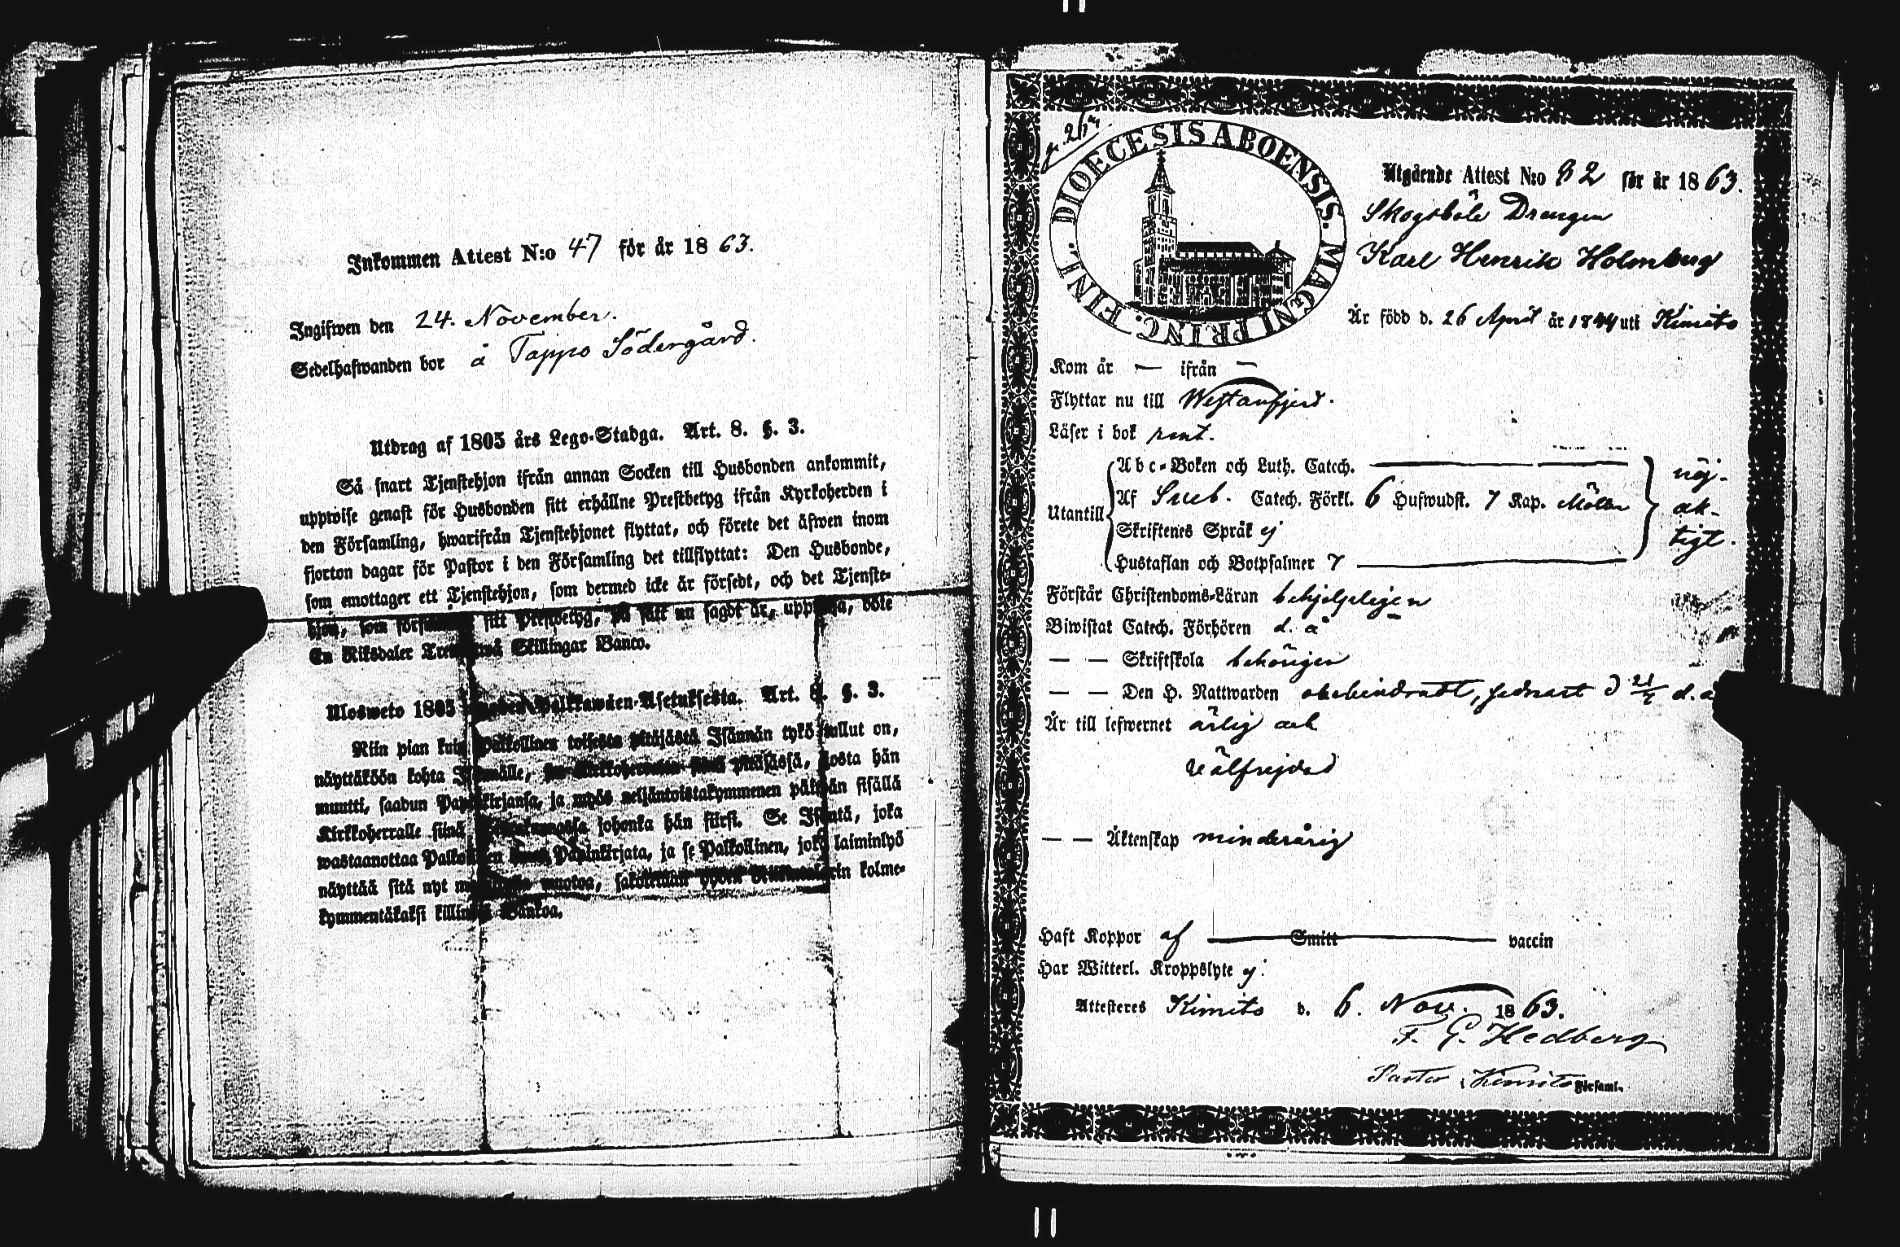 Inkommen Attest N:o 47 för år 1863.
Ingifwen den 24. November.
Sedelhafwanden bor å Tappo Södergård.
Utdrag af 1805 års Lego-Stadga. Art. 8. §. 3.
Så snart Tjenstehjon ifrån annan Socken till Husbonden ankommit,
uppwise genast för Husbonden sitt erhållne Prestbetyg ifrån Kyrkoherden i
den Församling, hwarifrån Tjenstehjonet flyttat, och förete det äfwen inom
fjorton dagar för Pastor i den Församling det tillflyttat: Den Husbonde,
som emottager ett Tjenstehjon, som dermed icke är försedt, och det Tjenste-
hjon, som sitt Prestbetyg, på sätt nu sagdt är, uppwisa, böte
En Riksdaler Trettiotwå Skillingar Banco.
Ulosweto 1805 Palkkawäen-Asetuksesta. Art. 8. §. 3.
Niin pian kuin Palkollinen toisesta pitäjästä Isännän tykö tullut on,
näyttäköön kohta Isännälle, pitäjässä, josta hän
muutti, saadun Papinkirjansa, ja myös neljäntoistakymmenen päiwän sisällä
Kirkkoherralle siinä johonka hän siirsi. Se Isäntä, joka
wastaanottaa Palkollisen Papinkirjata, ja se Palkollinen, joka laiminlyö
näyttää sitä nyt kolme-
kymmentäkaksi killinkiä Bankoa.
DIOECESIS ABOENSIS. MAGNI PRINC. FINL.
Utgående Attest N:o 82 för år 1863.
Skogsböle Drengen
Karl Henrik Holmberg
Är född d. 26 April år 1844 uti Kimito
Kom år — ifrån —
Flyttar nu till Westanfjerd.
Läser i bok rent.
Utantill
Abc-Boken och Luth. Catech. nöj-
Af Sveb. Catech. Förkl. 6 Hufwudst. 7 Kap. Möller ak-
Skriftenes Språk ej tigt.
Hustaflan och Botpsalmer 7
Förstår Christendoms-Läran behjelpligen
Biwistat Catech. Förhören d. å
— — Skriftskola behörigen
— — Den H. Nattwarden obehindradt, sednast d. å
Är till lefwernet ärlig och
välfrejdad
— — Äktenskap minderårig
Haft Koppor af Smitt vaccin
Har Witterl. Kroppslyte ej.
Attesteres Kimito d. 6. Nov. 1863.
F. G. Hedberg
Pastor i Kimito Församl.